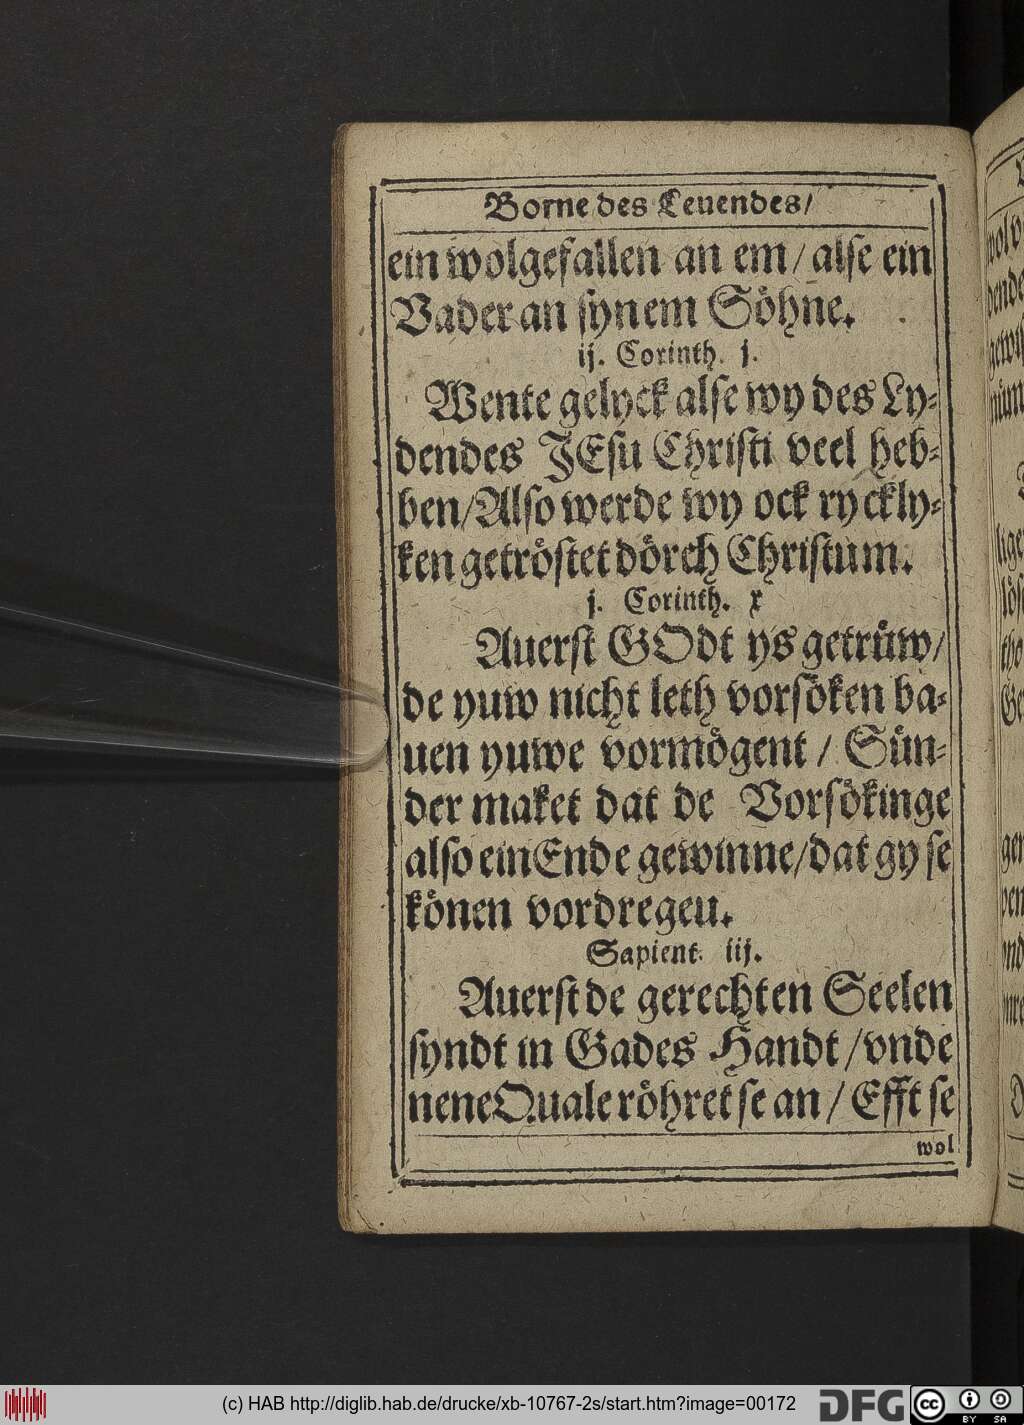 Borne des Leuendes/
ein wolgefallen an em/ alse ein
Vader an synem Söhne.
ij. Corinth. j.
Wente gelyck alse wy des Ly-
dendes JEsu Christi veel heb-
ben/ Also werde wy ock ryckly-
ken getröstet dörch Christum.
j. Corinth. x
Auerst GOdt ys getrüw/
de yuw nicht leth vorsöken ba-
uen yuwe vormögent / Sün-
der maket dat de Vorsökinge
also ein Ende gewinne/ dat gy se
können vordregeu.
Sapient. iij.
Auerst de gerechten Seelen
syndt in Gades Handt / vnde
nene Quale röhret se an / Efft se
wol
(c) HAB http://diglib.hab.de/drucke/xb-10767-2s/start.htm?image=00172
DFG
cc
BY SA